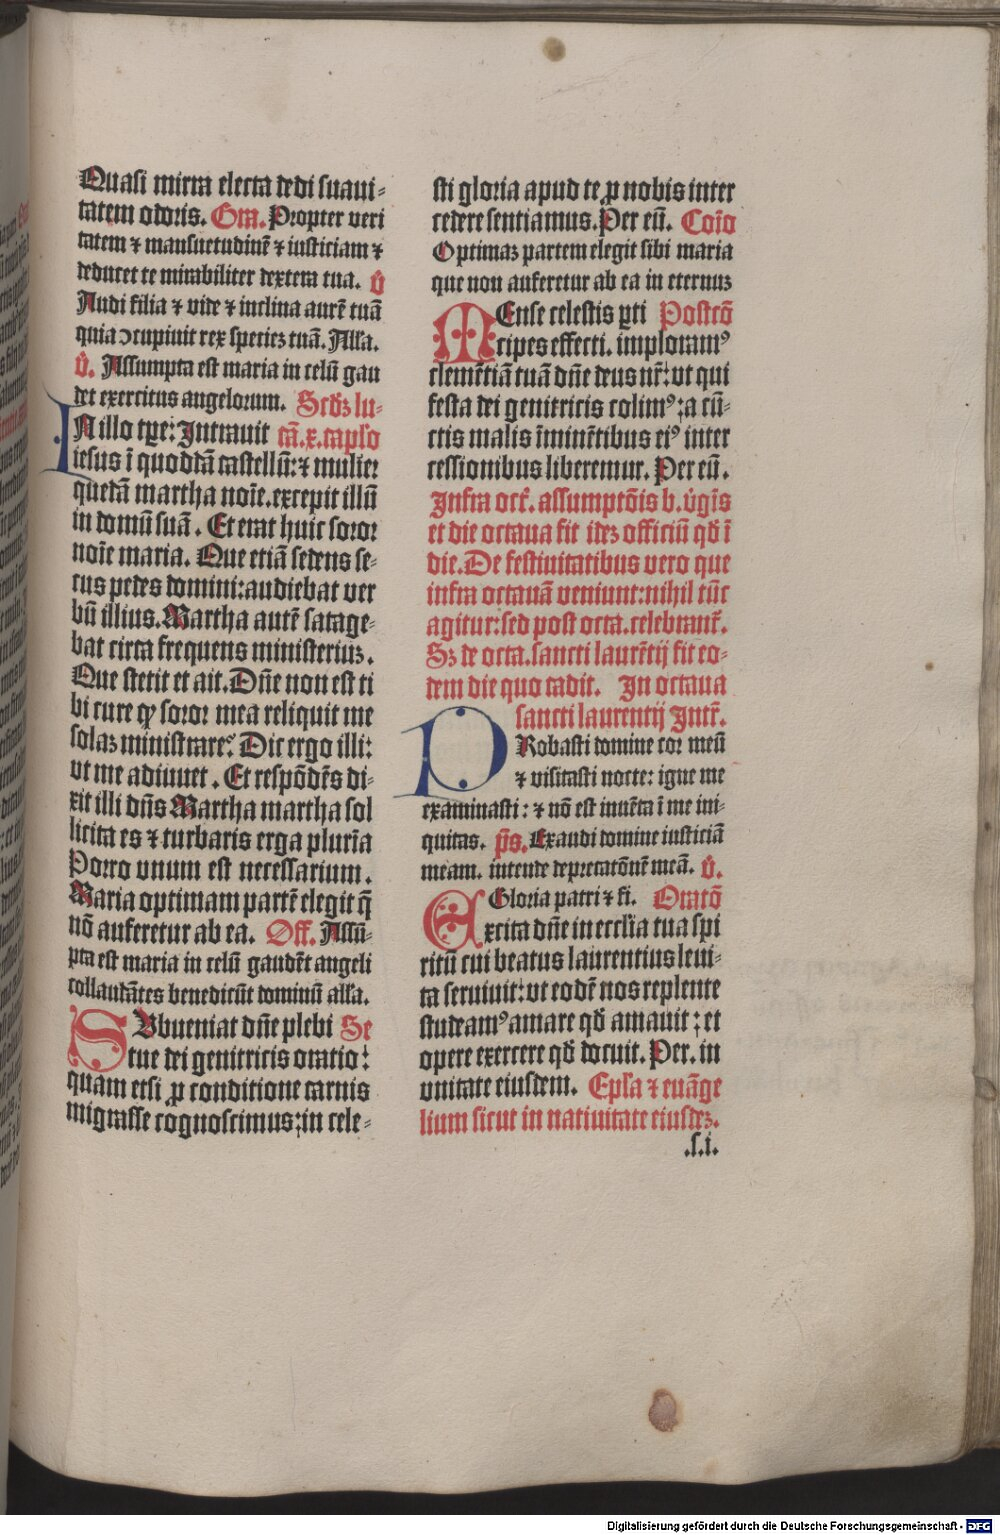 Quasi mirra electa dedi suaui-
tatem odoris. Gra. Propter veri
tatem ⁊ mansuetudinē ⁊ iusticiam ⁊
deducet te mirabiliter dextera tua. v̄
Audi filia ⁊ vide ⁊ inclina aurē tuā
quia ↄcupiuit rex specieꝫ tuā. Alľa.
v̄. Assumpta est maria in celū gau
det exercitus angelorum. Scd̄ꝫ lu-
IN illo tp̄e: Intrauit cā. x. capľo
iesus ī quoddā castellū: ⁊ mulier
quedā martha noīe. excepit illū
in domū suā. Et erat huic soror
noīe maria. Que etiā sedens se-
cus pedes domini: audiebat ver
bū illius. Martha autē satage-
bat circa frequens ministeriuꝫ.
Que stetit et ait. Dn̄e non est ti
bi cure ꝙ soror mea reliquit me
solaꝫ ministrare? Dic ergo illi:
vt me adiuuet. Et respōdēs di-
xit illi dn̄s Martha martha sol
licita es ⁊ turbaris erga plurīa
Porro vnum est necessarium.
Maria optimam partē elegit q̄
nō auferetur ab ea. Off. Assū-
pta est maria in celū gaudēt angeli
collaudātes benedicūt dominū alľa.
SVbueniat dn̄e plebi Se
tue dei genitricis oratio:
quam etsi ꝓ conditione carnis
migrasse cognoscimus: in cele-
sti gloria apud te ꝓ nobis inter
cedere sentiamus. Per eū. Coīo
Optimaꝫ partem elegit sibi maria
que non auferetur ab ea in eternuꝫ
MEnse celestis ꝑti Postcō
cipes effecti. imploramꝰ
clemētiā tuā dn̄e deus nr̄: vt qui
festa dei genitricis colimꝰ: a cū-
ctis malis īminētibus eiꝰ inter
cessionibus liberemur. Per eū.
Infra oct̄. assumptōis b. v̓gīs
et die octaua fit ideꝫ officiū qd̄ ī
die. De festiuitatibus vero que
infra octauā veniunt: nihil tūc
agitur: sed post octa. celebrant̄.
Sꝫ de octa. sancti laurētij fit eo-
dem die quo cadit. In octaua
sancti laurentij Intr̄.
PRobasti domine cor meū
⁊ visitasti nocte: igne me
examinasti: ⁊ nō est inuēta ī me ini-
quitas. p̄s. Exaudi domine iusticiā
meam. intende deprecatōnē meā. v̄.
Gloria patri ⁊ fi. Oratō
Excita dn̄e in eccľia tua spi
ritū cui beatus laurentius leui-
ta seruiuit: vt eodē nos replente
studeamꝰ amare qd̄ amauit: et
opere exercere qd̄ docuit. Per. in
vnitate eiusdem. Epľa ⁊ euāge
lium sicut in natiuitate eiusdeꝫ.
.s.i.
Digitalisierung gefördert durch die Deutsche Forschungsgemeinschaft - DFG